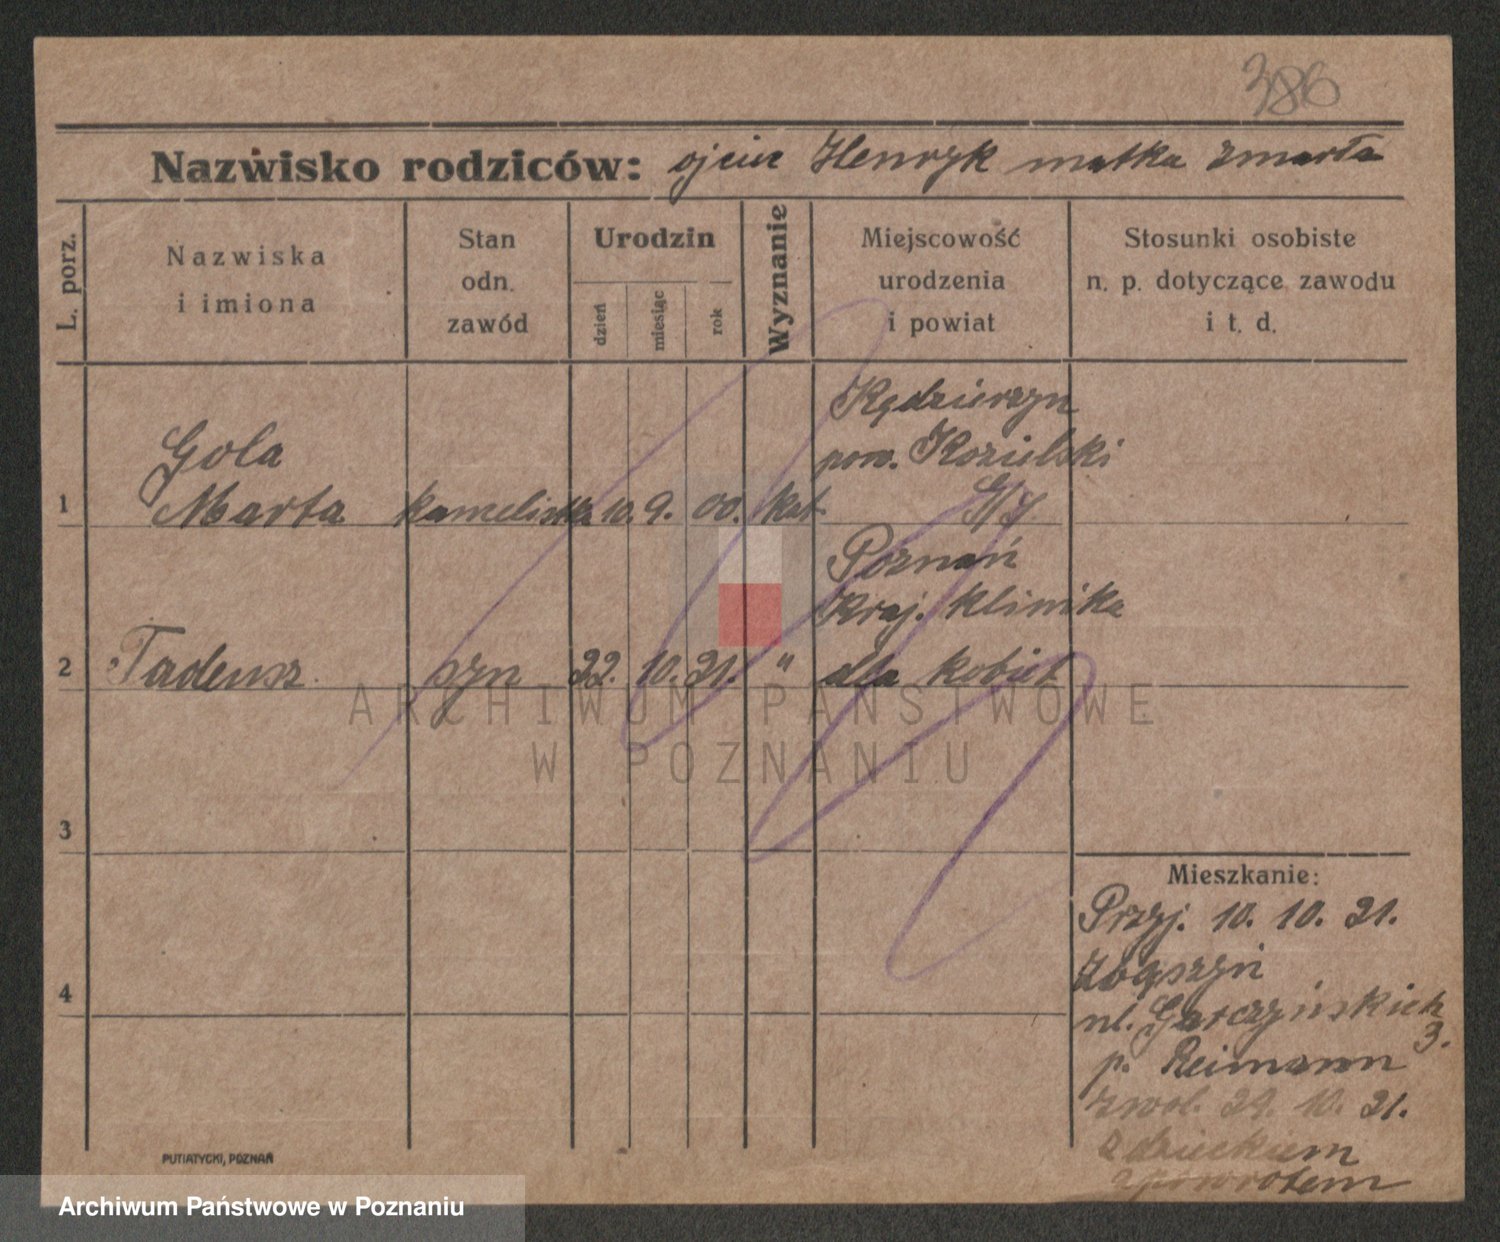 386
Nazwisko rodziców: ojciec Henryk matka zmarła
L. porz.
Nazwiska
i imiona
Stan
odn.
zawód
Urodzin
dzień
miesiąc
rok
Wyznanie
Miejscowość
urodzenia
i powiat
Stosunki osobiste
n. p. dotyczące zawodu
i t. d.
Kędzierzyn
Gola
pow. Kozielski
1 Marta kamelistka 10. 9. 00. kat. G/S
Poznań
Kraj. klinika
2 Tadeusz syn 22. 10. 21. " dla kobiet
ARCHIWUM PAŃSTWOWE
W POZNANIU
3
Mieszkanie:
Przyj. 10. 10. 21.
Zbąszyń
4
ul. Garczyńskich
3.
p. Reimann
zwol. 29. 10. 21.
z dzieckiem
z powrotem
PUTIATYCKI, POZNAŃ
Archiwum Państwowe w Poznaniu